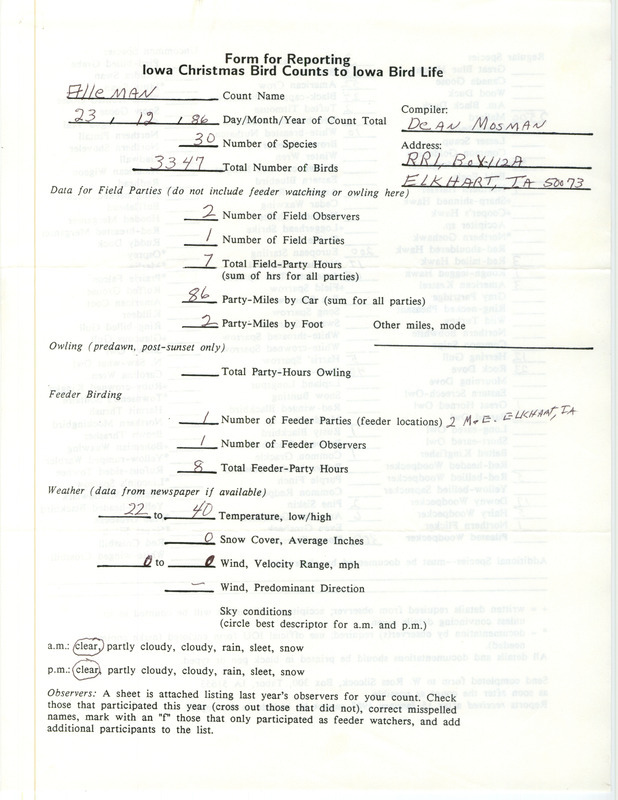 Form for Reporting
Iowa Christmas Bird Counts to Iowa Bird Life
AlleMAN Count Name
23, 12, 86 Day/Month/Year of Count Total
Compiler:
DeAN MosMAN
30 Number of Species
Address:
RR1, Box 112A
3347 Total Number of Birds
ELKHART, IA 50073
Data for Field Parties (do not include feeder watching or owling here)
2 Number of Field Observers
1 Number of Field Parties
7 Total Field-Party Hours
(sum of hrs for all parties)
86 Party-Miles by Car (sum for all parties)
2 Party-Miles by Foot Other miles, mode
Owling (predawn, post-sunset only)
Total Party-Hours Owling
Feeder Birding
1 Number of Feeder Parties (feeder locations) 2 M.E. ELKHART, IA
1 Number of Feeder Observers
8 Total Feeder-Party Hours
Weather (data from newspaper if available)
22 to 40 Temperature, low/high
0 Snow Cover, Average Inches
0 to 0 Wind, Velocity Range, mph
– Wind, Predominant Direction
Sky conditions
(circle best descriptor for a.m. and p.m.)
a.m.: clear, partly cloudy, cloudy, rain, sleet, snow
p.m.: clear, partly cloudy, cloudy, rain, sleet, snow
Observers: A sheet is attached listing last year's observers for your count. Check
those that participated this year (cross out those that did not), correct misspelled
names, mark with an "f" those that only participated as feeder watchers, and add
additional participants to the list.